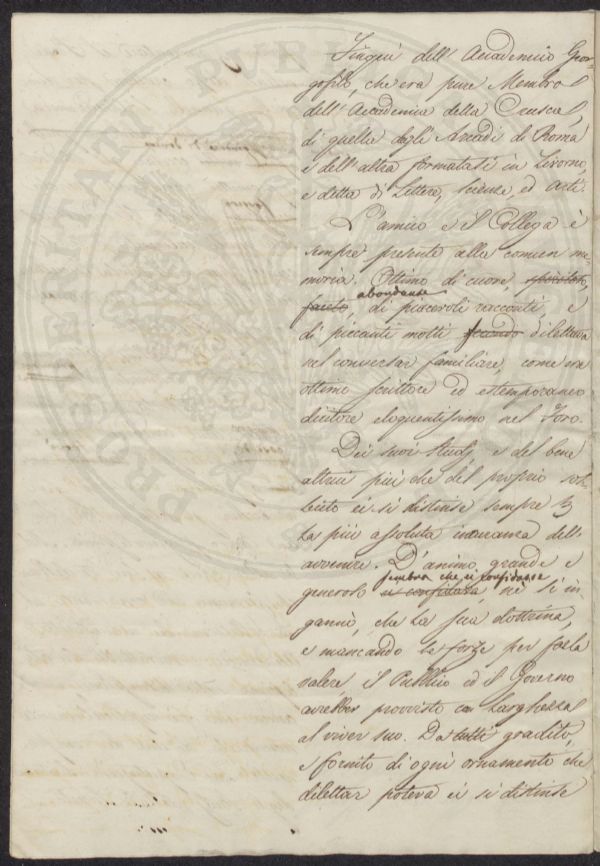 fingui dell' Accademia Geor-
gofili, che era pure Membro
dell' Accademia della Crusca,
di quella degli Arcadi di Roma
e dell' altra formatasi in Livorno,
e detta di Lettere, scienze, ed arti.
L'amico e il Collega è
sempre presente alla comun me-
moria. Ottimo di cuore,
faceto, abondante di piacevoli racconti, e
di piccanti motti fecondo dilettava
nel conversar familiare, come era
ottimo scrittore ed estemporaneo
dicitore eloquentissimo nel Foro.
Dei suoi studj, e del bene
altrui più che del proprio sol-
lecito ei si distinse sempre p
la più assoluta incuranza dell'
avvenire. D'animo grande e
sembra che ei confidasse
generoso ei confidava, nè si in
gannò, che la sua dottrina,
e mancando le forze per farla
valere, il Pubblico ed il Governo
avrebber provvisto con larghezza
al viver suo. Da tutti gradito,
e fornito di ogni ornamento che
dilettar poteva ei si distinse
PVBLICAE
PROSPERITATI